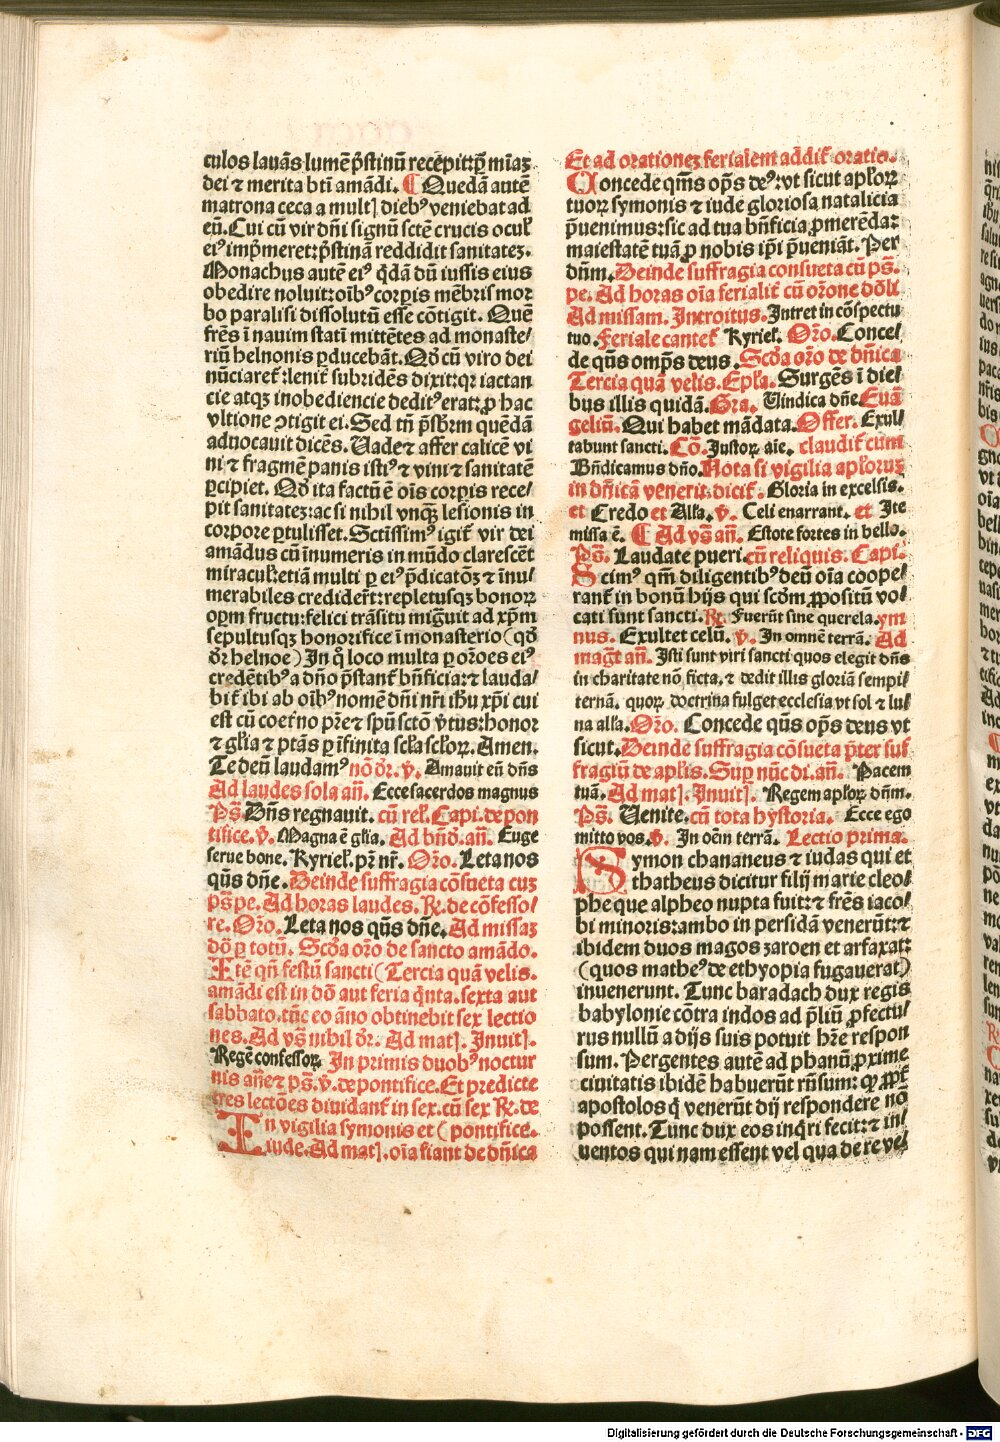 culos lauãs lumē p̃stinũ recepit: ꝑ mĩaʒ
dei ⁊ merita bt̃i amãdi. ¶ Quedã autē
matrona ceca a multꝭ diebꝰ veniebat ad
eũ. Cui cũ vir dñi signũ sctē crucis ocul̃
eiꝰ imp̃meret: p̃stinã reddidit sanitateʒ.
Monachus autē eiꝰ q̃dã dũ iussis eius
obedire noluit: oĩbꝰ corpis mēbris mor
bo paralisi dissolutũ esse cõtigit. Quē
fr̃es ĩ nauim statĩ mittētes ad monaste/
riũ helnonis ꝑducebãt. Qð cũ viro dei
nũciaret̃: lenit̃ subridēs dixit: qꝛ iactan
cie atqʒ inobediencie deditꝰ erat: ꝓ hac
vltione ꝯtigit ei. Sed tñ p̃sbꝛm quēdã
aduocauit dicēs. Uade ⁊ affer calicē vi
ni ⁊ fragmē panis istiꝰ ⁊ vini ⁊ sanitatē
ꝑcipiet. Qð ita factũ ē oĩs corpis rece/
pit sanitateʒ: ac si nihil vnqʒ lesionis in
corpore ꝑtulisset. Sctissimꝰ igit̃ vir dei
amãdus cũ ĩnumeris in mũdo clarescēt
miracul̃: etiã multi ꝑ eiꝰ p̃dicatõʒ ⁊ ĩnu/
merabiles credidert̃: repletusqʒ bonoꝝ
opꝝm fructu: felici trãsitu migr̃uit ad xp̃m
sepultusqʒ honorifice ĩ monasterio (qð
ðr helnoe) In q̃ loco multa ꝑ oꝛões eiꝰ
credētibꝰ a dño p̃stant̃ bñficia: ⁊ lauda/
bit̃ ibi ab oĩbꝰ nomē dñi nr̃i ihu xp̃i cui
est cũ coet̃no pr̃e ⁊ spũ sctõ v̓tus: honor
⁊ gl̃ia ⁊ ptãs ꝑ ĩfinita scl̃a scl̃oꝝ. Amen.
Te deũ laudamꝰ nõ ðr. v̓. Amauit eũ dñs
Ad laudes sola añ. Ecce sacerdos magnus
Ps̃. Dñs regnauit. cũ rel̃. Capi. de pon
tifice. v̓. Magna ē gl̃ia. Ad bñð. añ. Euge
serue bone. Kyriel̃. pr̃ nr̃. Oꝛo. Leta nos
qũs dñe. Deinde suffragia cõsueta cuʒ
ps̃ pe. Ad horas laudes. ℞. de cõfesso/
re. Oꝛo. Leta nos qũs dñe. Ad missaʒ
dõ ꝑ totũ. Scða oꝛo de sancto amãdo.
Itē qñ festũ sancti (Tercia quã velis.
amãdi est in dõ aut feria q̃nta. sexta aut
sabbato. tũc eo ãno obtinebit sex lectio
nes. Ad vs̃ nihil ðr. Ad matꝭ. Inuitꝭ.
Regē confessoꝝ. In primis duobꝰ noctur
nis añe ⁊ ps̃. v̓. de pontifice. Et predicte
tres lectões diuidant̃ in sex. cũ sex ℞. de
In vigilia symonis et (pontifice.
iude. Ad matꝭ. oĩa fiant de dñica
Et ad orationeʒ ferialem addit̃ oratio.
Concede qm̃s op̃s deꝰ: vt sicut apl̃oꝝ
tuoꝝ symonis ⁊ iude gloriosa natalicia
p̃uenimus: sic ad tua bñficia ꝓmerēda:
maiestatē tuã ꝓ nobis ip̃i p̃ueniãt. Per
dñm. Deinde suffragia consueta cũ ps̃.
pe. Ad horas oĩa ferialit̃ cũ oꝛone dõlꝭ
Ad missam. Introitus. Intret in cõspectu
tuo. Feriale cantet̃ Kyriel̃. Oꝛo. Conce/
de qũs omp̃s deus. Scða oꝛo de dñica
Tercia quã velis. Epl̃a. Surgēs ĩ die/
bus illis quidã. Gra. Uindica dñe. Euã
geliũ. Qui habet mãdata. Offer. Exul/
tabunt sancti. Cõ. Justoꝝ aĩe. claudit̃ cum
Bñdicamus dño. Nota si vigilia apl̃oruʒ
in dñicã venerit: dicit̃. Gloria in excelsis.
et Credo et Alla. v̓. Celi enarrant. et Ite
missa ē. ¶ Ad vs̃ añ. Estote fortes in bello.
Ps̃. Laudate pueri. cũ reliquis. Capi.
Scimꝰ qm̃ diligentibꝰ deũ oĩa coope/
rant̃ in bonũ hijs qui scðm ꝓpositũ vo/
cati sunt sancti. ℞. Fuerũt sine querela. ym
nus. Exultet celũ. v̓. In omnē terrã. Ad
mag̃t añ. Isti sunt viri sancti quos elegit dñs
in charitate nõ ficta. ⁊ dedit illis gloriã sempi/
ternã. quoꝝ doctrina fulget ecclesia vt sol ⁊ lu/
na alla. Oꝛo. Concede qũs op̃s deus vt
sicut. Deinde suffragia cõsueta p̃ter suf
fragiũ de apl̃is. Suꝑ nũc di. añ. Pacem
tuã. Ad matꝭ. Inuitꝭ. Regem apl̃oꝝ dñm.
Ps̃. Uenite. cũ tota hystoria. Ecce ego
mitto vos. v̓. In oēm terrã. Lectio prima.
Symon chananeus ⁊ iudas qui et
thatheus dicitur filij marie cleo/
phe que alpheo nupta fuit: ⁊ fr̃es iaco/
bi minoris: ambo in persidã venerũt: ⁊
ibidem duos magos zaroen et arfaxat:
(quos matheꝰ de ethyopia fugauerat)
inuenerunt. Tunc baradach dux regis
babylonie cõtra indos ad p̃liũ ꝓfectu/
rus nullũ a dijs suis potuit hr̃e respon
sum. Pergentes autē ad phanũ ꝓxime
ciuitatis ibidē habuerũt rñsum: qꝫ ꝓpt̃
apostolos q̃ venerũt dij respondere nõ
possent. Tunc dux eos inq̃ri fecit: ⁊ in/
uentos qui nam essent vel qua de re ve/